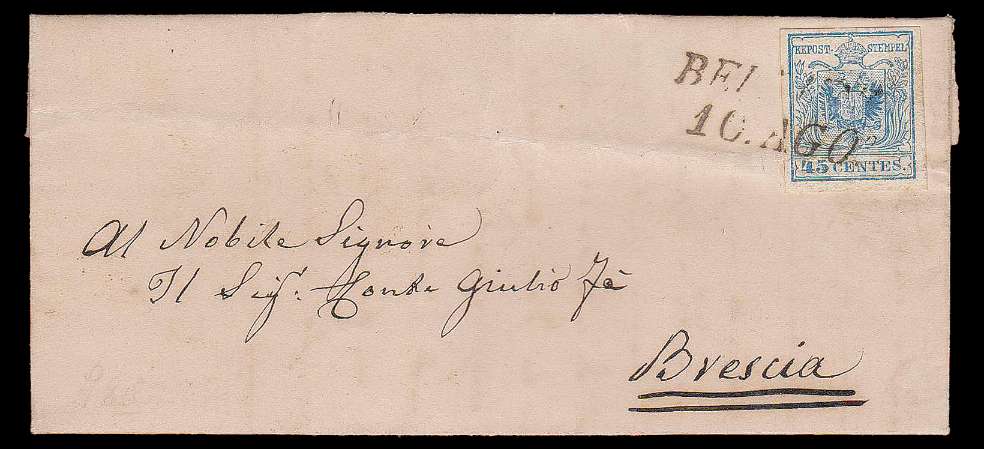 KKPOST-STEMPEL
BEL
10. AGO.
45 CENTES.
Al Nobile Signore
Il Sigr. Conte Giulio Fè
Brescia